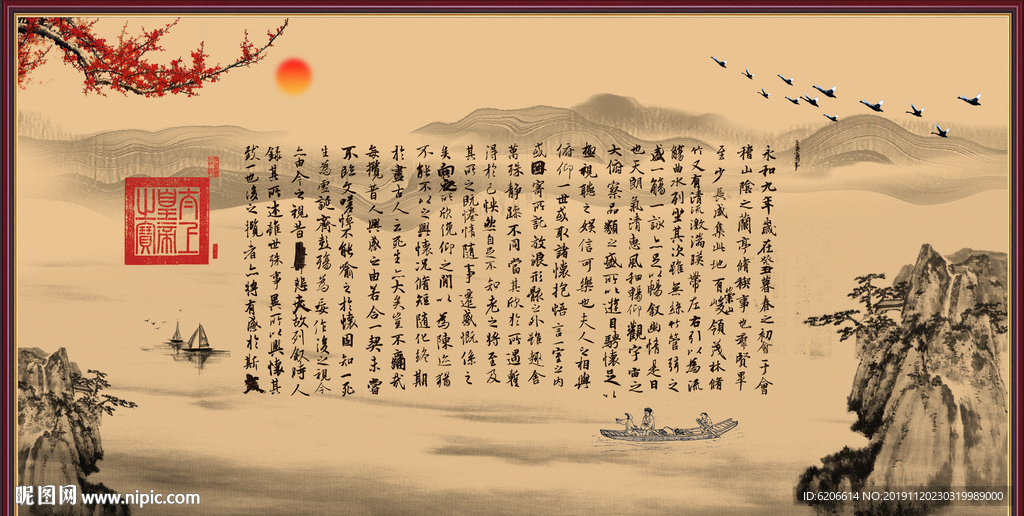 永和九年歲在癸丑暮春之初會于會
稽山陰之蘭亭脩稧事也羣賢畢
至少長咸集此地有崇山峻領茂林脩
竹又有清流激湍暎帶左右引以為流
觴曲水列坐其次雖無絲竹管弦之
盛一觴一詠亦足以暢敘幽情是日
也天朗氣清惠風和暢仰觀宇宙之
大俯察品類之盛所以遊目騁懷足以
極視聽之娛信可樂也夫人之相與
俯仰一世或取諸懷抱悟言一室之內
或因寄所託放浪形骸之外雖趣舍
萬殊靜躁不同當其欣於所遇暫
得於己怏然自足不知老之將至及
其所之既惓情隨事遷感慨係之
矣向之所欣俛仰之閒以為陳迹猶
不能不以之興懷況脩短隨化終期
於盡古人云死生亦大矣豈不痛哉
每攬昔人興感之由若合一契未嘗
不臨文嗟悼不能喻之於懷固知一死
生為虛誕齊彭殤為妄作後之視今
亦由今之視昔悲夫故列敘時人
錄其所述雖世殊事異所以興懷其
致一也後之攬者亦將有感於斯文
太上
皇帝
之寶
昵图网 www.nipic.com
ID:6206614 NO:20191120230319989000